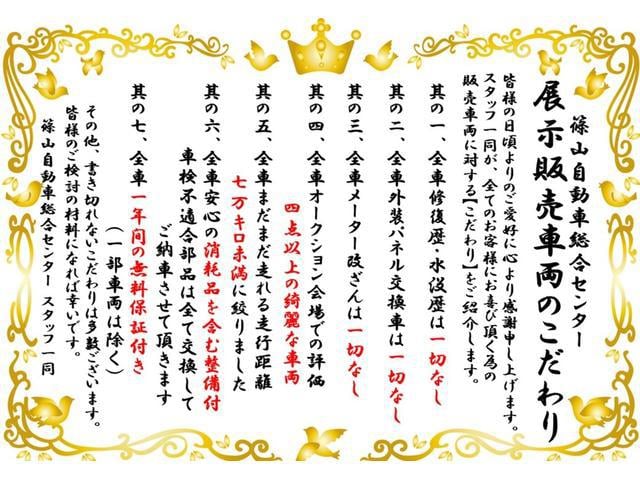 篠山自動車総合センター
展示販売車両のこだわり
皆様の日頃よりのご愛好に心より感謝申し上げます。
スタッフ一同が、全てのお客様にお喜び頂く為の
販売車両に対する【こだわり】をご紹介します。
其の一、全車修復歴・水没歴は一切なし
其の二、全車外装パネル交換車は一切なし
其の三、全車メーター改ざんは一切なし
其の四、全車オークション会場での評価
四点以上の綺麗な車両
其の五、全車まだまだ走れる走行距離
七万キロ未満に絞りました
其の六、全車安心の消耗品を含む整備付
車検不適合部品は全て交換して
ご納車させて頂きます
其の七、全車一年間の無料保証付き
（一部車両は除く）
その他、書き切れないこだわりは多数ございます。
皆様のご検討の材料になれば幸いです。
篠山自動車総合センター スタッフ一同